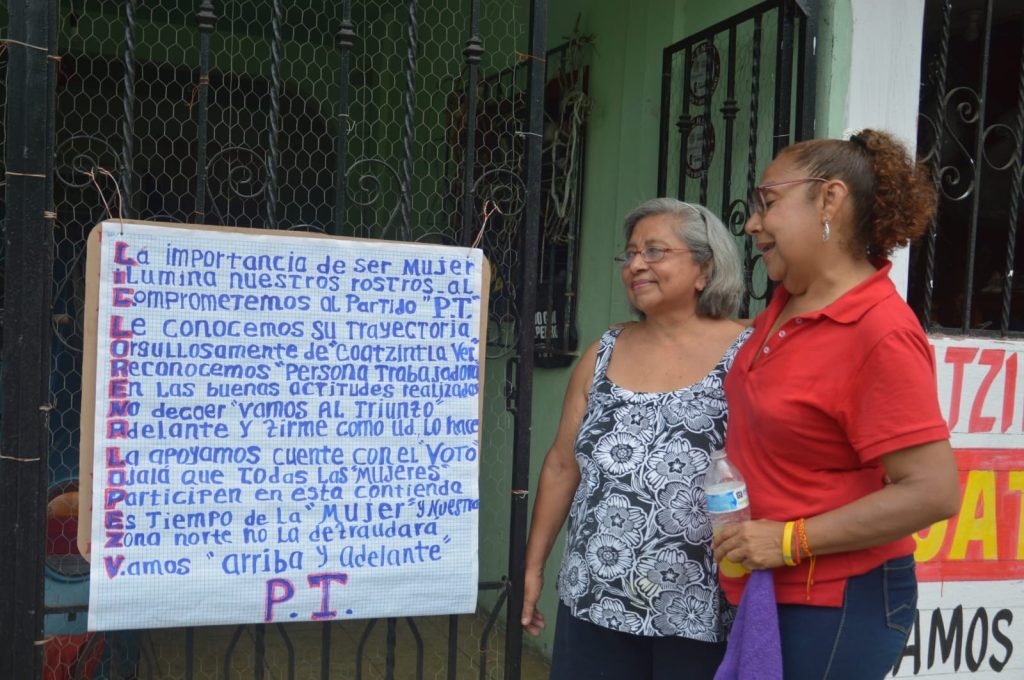 La importancia de ser Mujer
ilumina nuestros rostros al
Comprometemos al Partido "P.T."
Le conocemos su trayectoria
Orgullosamente de "Coatzintla Ver.
Reconocemos "Persona Trabajadora
En las buenas actitudes realizadas
No decaer "vamos AL Triunzo"
Adelante y zirme como ud. lo hace
La apoyamos cuente con el "voto"
Ojalá que todas las "Mujeres"
Participen en esta contienda
Es Tiempo de la "Mujer" y Nuestra
Zona norte no la dezraudara
V.amos "arriba y adelante"
P.T.
TZI
AT
AMOS